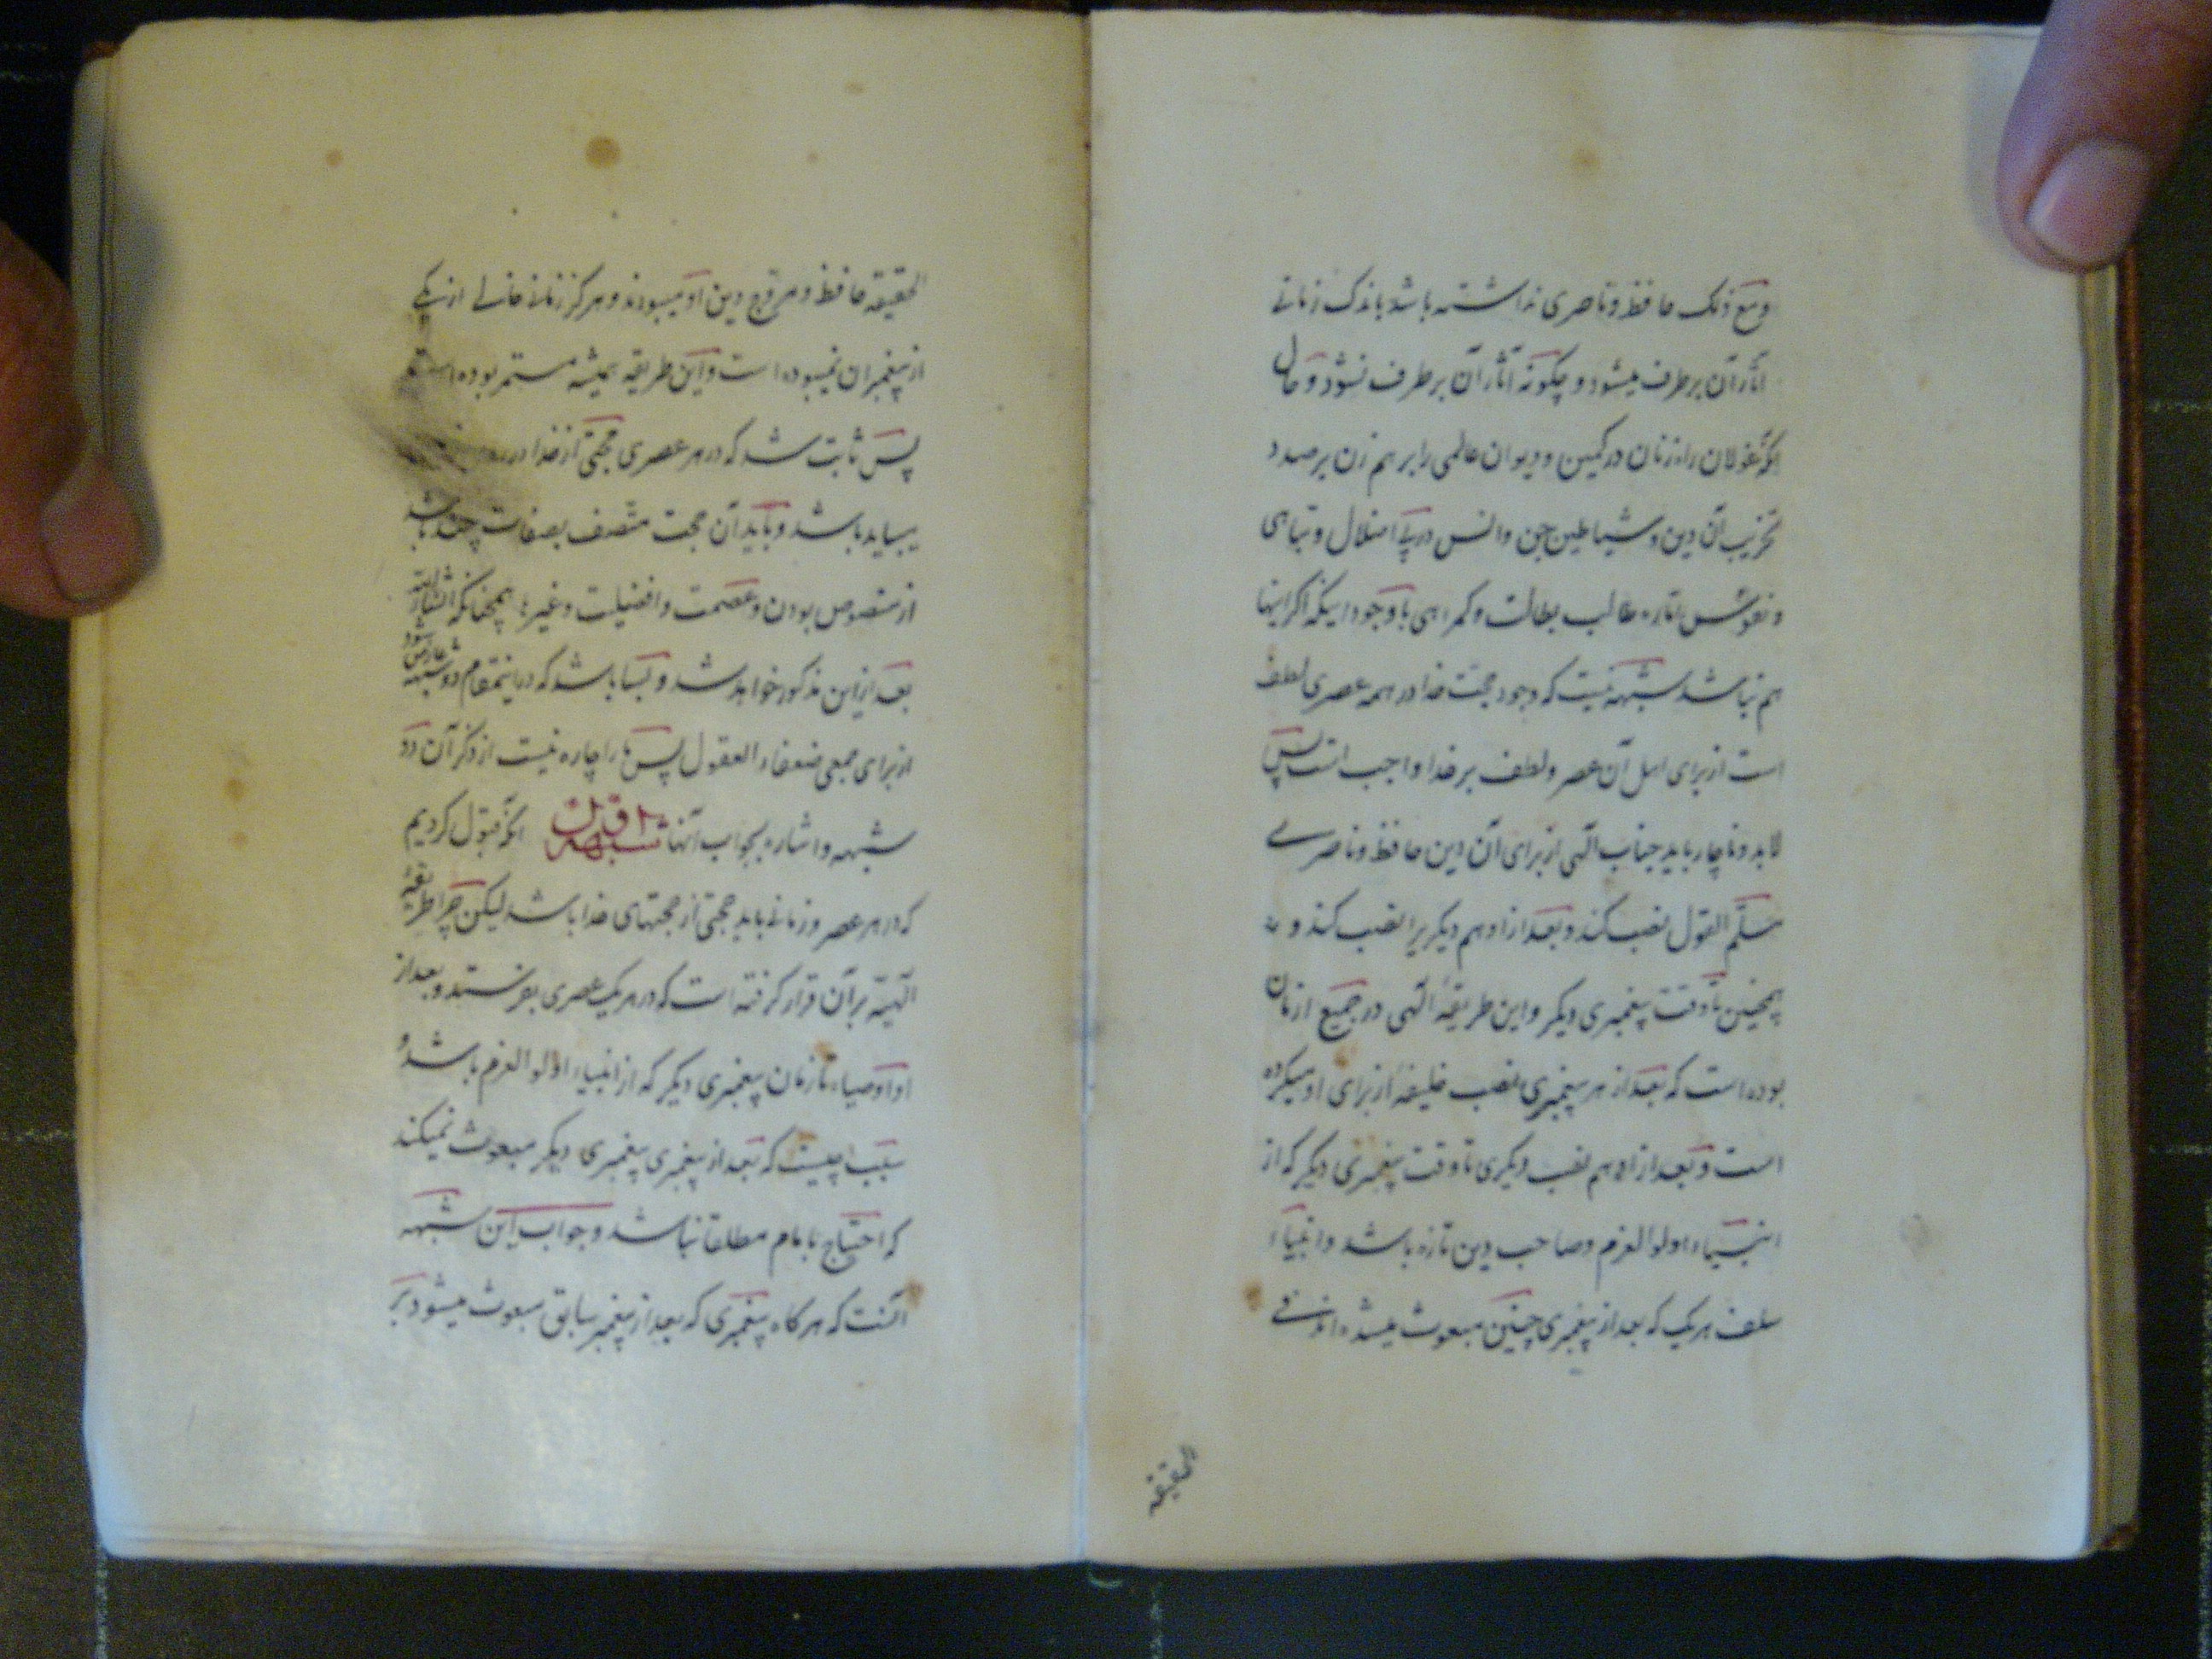 ومع ذلک حافظ و ناصری نداشته باشد باندک زمانی
آثار آن برطرف میشود و چگونه آثار آن برطرف نشود و حال
آنکه غولان راه زنان در کمین و دیوان عالمی را بر هم زن بر صدد
تخریب آن دین و شیاطین جن و انس در پی اضلال و تباهی
و نفوس اماره طالب بطالت و گمراهی با وجود اینکه اگر اینها
هم نباشد شبهه نیست که وجود حجت خدا در همه عصری لطف
است از برای اهل آن عصر و لطف بر خدا واجب است پس
لابد و ناچار باید جناب الهی از برای آن دین حافظ و ناصری
مسلم القول نصب کند و بعد از او هم دیگریرا نصب کند و
همچنین تا وقت پیغمبری دیگر و این طریقه الهی در جمیع ازمان
بوده است که بعد از هر پیغمبری نصب خلیفه از برای او میکرده
است و بعد از او هم نصب دیگری تا وقت پیغمبری دیگر که از
انبیاء اولو العزم و صاحب دین تازه باشد و انبیاء
سلف هر یک که بعد از پیغمبری چنین مبعوث میشده‌اند فی
الحقیقه
الحقیقه حافظ و مروج دین او میبودند و هرگز زمانی خالی از یکی
از پیغمبران نمیبوده است و این طریقه همیشه مستمر بوده است
پس ثابت شد که در هر عصری حجتی از خدا در
بباید باشد و باید آن حجت متصف بصفات چند باشد
از منصوص بودن و عصمت و افضلیت و غیرها همچنانکه انشاء الله
بعد از این مذکور خواهد شد و بسا باشد که در اینمقام دو شبهه عارض شود
از برای جمعی ضعفاء العقول پس ما را چاره نیست از ذکر آن دو
شبهه و اشاره بجواب آنها شبهه اول آنکه قبول کردیم
که در هر عصر و زمانی باید حجتی از حجتهای خدا باشد لیکن چرا طریقه
الهیه بر آن قرار گرفته است که در هر یک عصری بفرستد و بعد از
او اوصیاء تا زمان پیغمبری دیگر که از انبیاء اولو العزم باشد و
سبب چیست که بعد از پیغمبری پیغمبری دیگر مبعوث نمیکند
که احتیاج بامام مطلقا نباشد و جواب این شبهه
آنست که هر گاه پیغمبری که بعد از پیغمبر سابق مبعوث میشود بر